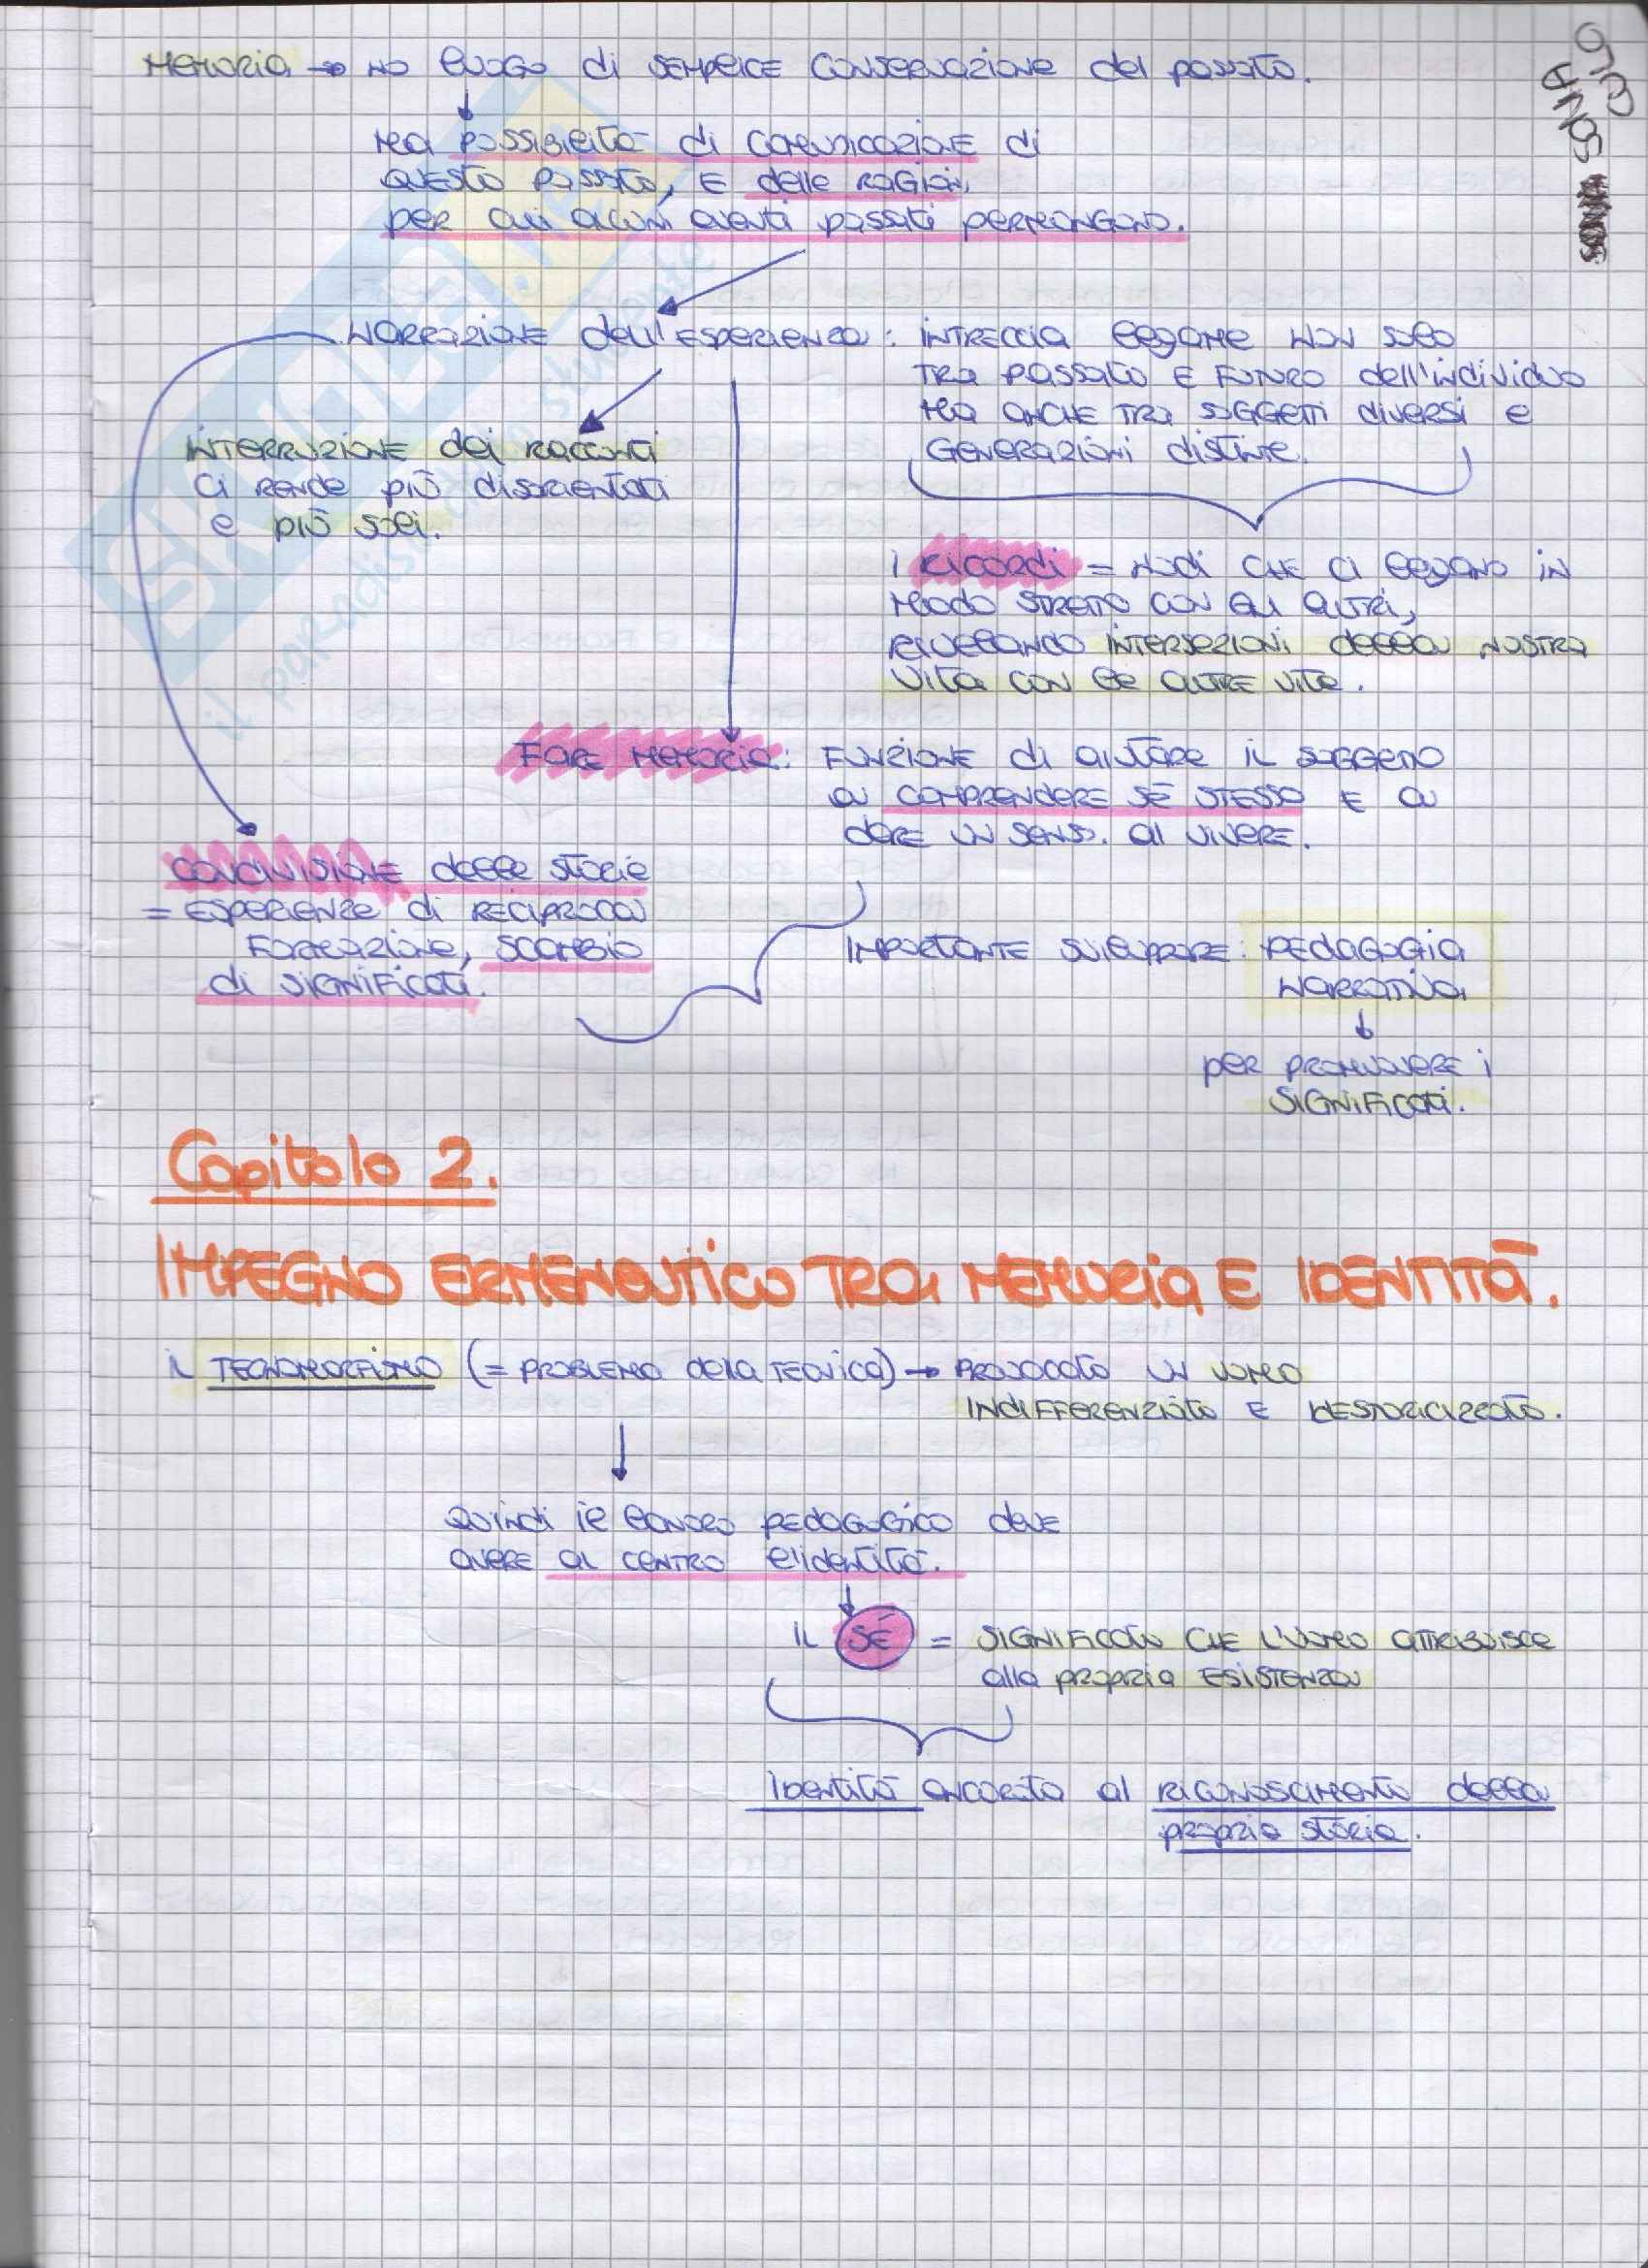 Memoria → no luogo di semplice conservazione del passato.
ma possibilità di comunicazione di
questo passato, e delle ragioni
per cui alcuni eventi passati permangono.
Narrazione dell'esperienza: intreccia legame non solo
tra passato e futuro dell'individuo
ma anche tra soggetti diversi e
generazioni distinte.
interruzione dei racconti
ci rende più disorientati
e più soli.
I ricordi = nodi che ci legano in
modo stretto con gli altri,
rivelando intersezioni della nostra
vita con le altre vite.
Fare memoria: funzione di aiutare il soggetto
a comprendere sé stesso e a
dare un senso. al vivere.
condivisione delle storie
= esperienze di reciproca
formazione, scambio
di significati.
importante sviluppare: pedagogia
narrativa
↓
per promuovere i
significati.
Capitolo 2.
IMPEGNO ERMENEUTICO TRA MEMORIA E IDENTITÀ.
il tecnomorfismo (= problema della tecnica) → provocato un uomo
indifferenziato e destoricizzato.
Quindi il lavoro pedagogico deve
avere al centro l'identità.
il sé = significato che l'uomo attribuisce
alla propria esistenza
Identità ancorata al riconoscimento della
propria storia.
SKUOLA.net
il paradiso dello studente